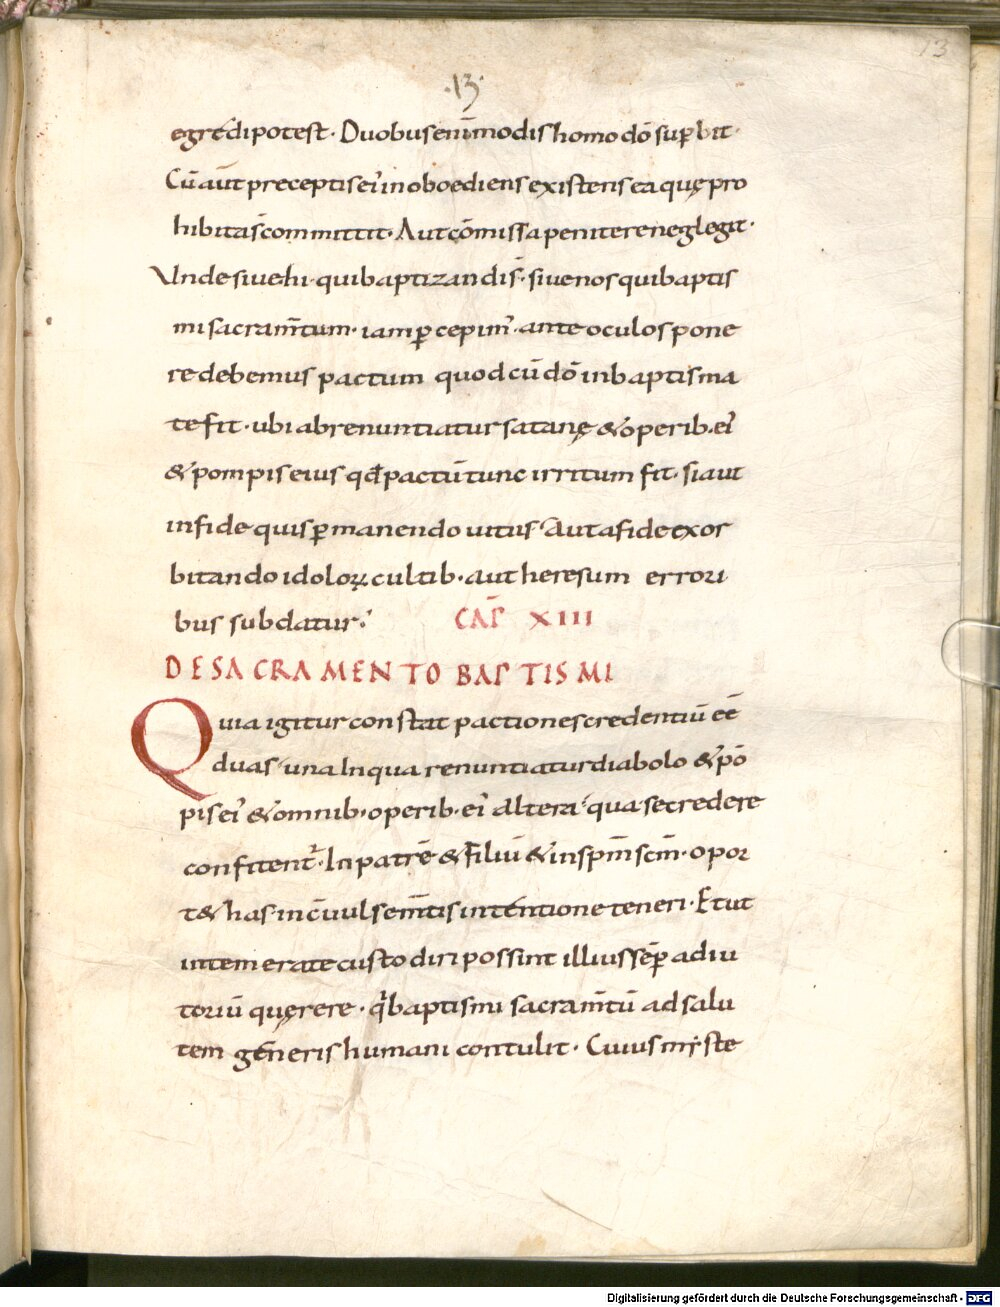 13
·13·
egredi potest· Duobus enī modis homo dō suꝑbit·
Cū aūt preceptis ei' inoboediens existens ea quę pro
hibita s̄ committit· Aut cōmissa penitere neglegit·
Unde siue hi· qui baptizandi s̄· siue nos qui baptis
mi sacram̄tum· iam ꝑcepim'· ante oculos pone
re debemus pactum quod cū dō in baptisma
te fit· ubi abrenuntiatur satanę & operib· ei'
& pompis eius qđ pactū tunc irritum fit· si aut
infide quis ꝑmanendo uitiis· Aut a fide exor
bitando idoloꝝ cultib· aut heresum errori
bus subdatur·' CAP̄ XIII
DE SACRAMENTO BAPTISMI
Quia igitur constat pactiones credentiū eē
duas· una In qua renuntiatur diabolo & pō
pis ei' & omnib· operib· ei' Altera· qua se credere
confitent̄· In patrē & Filiū & in sp̄m sc̄m· opor
t& has inc̄uulse m̄tis intentione teneri· Et ut
intemerate custodiri possint illius sēp adiu
toriū quęrere· q' baptismi sacram̄tū ad salu
tem generis humani contulit· Cuius myste
Digitalisierung gefördert durch die Deutsche Forschungsgemeinschaft - DFG